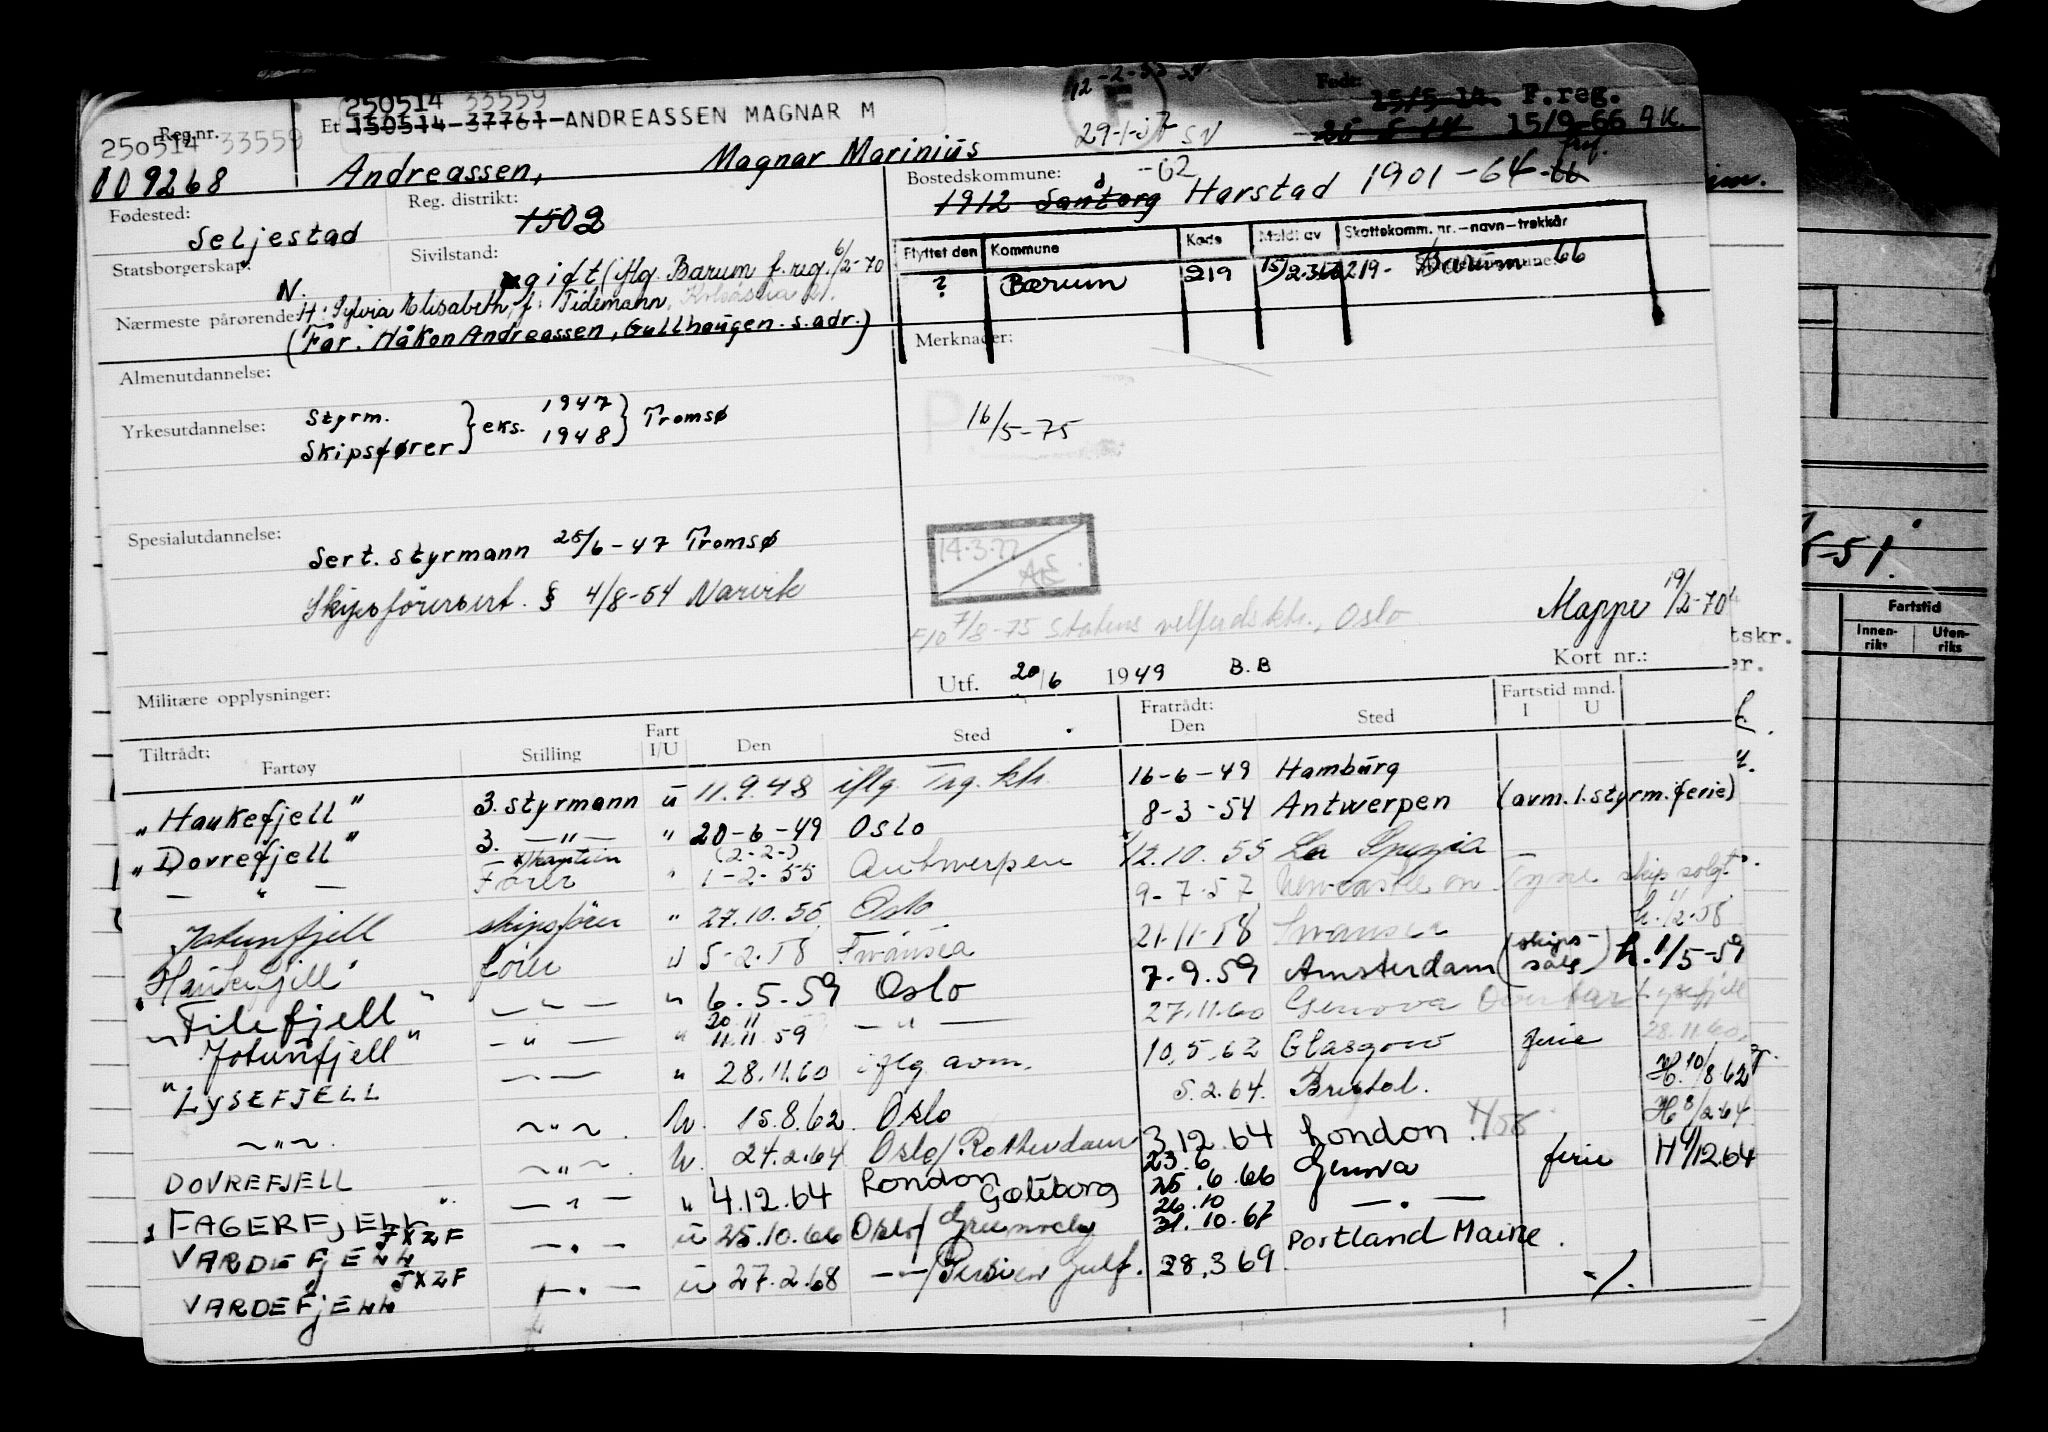 250514 33559
150514-37761-ANDREASSEN MAGNAR M
12-2-55
29-1-57 SV
Født: 15/5-14 F.reg.
25-5-14 15/9-66 AK.
Reg.nr.
250514 33559
Et
109268 Andreassen, Magnar Marinius
Fødested: Seljestad
Reg. distrikt: 1502
Bostedskommune: 1912 Sandtorg -62 Harstad 1901-64-66
Statsborgerskap: N.
Sivilstand: gift (iflg. Bærum f.reg. 6/2-70
Flyttet den Kommune Kode Meldt av Skattekomm. nr.-navn-trekkår
? Bærum 219 219- Bærum-66
Nærmeste pårørende: H: Sylvia Elisabeth, f: Tidemann, Kolsåslia 21.
(Far: Håkon Andreassen, Gullhaugen. s. adr.)
Merknader:
Almenutdannelse:
Yrkesutdannelse: Styrm. } eks. 1947 } Tromsø
Skipsfører 1948
16/5-75
Spesialutdannelse:
Sert. styrmann 25/6-47 Tromsø
Skipsførersert. § 4/8-54 Narvik
14.3.77 AE
7/8-75 Statens velferdsktr., Oslo
Mappe 19/2-70
Militære opplysninger:
Utf. 20/6 1949 B.B Kort nr.:
Tiltrådt: Fartøy Stilling Fart I/U Den Sted Fratrådt: Den Sted Fartstid mnd. I U
"Haukefjell" 3. styrmann u 11.9.48 iflg. Trg. ktr. 16-6-49 Hamburg
"Dovrefjell" 3. —"— " 20-6-49 Oslo 8-3-54 Antwerpen (avm. 1. styrm. ferie)
— " — Fører " 1-2-55 Antwerpen 12.10.55 La Spezia
Jotunfjell skipsfører " 27.10.55 Oslo 9-7-57 Newcastle on Tyne skip solgt.
"Haukefjell" fører u 5-2-58 Swansea 21-11-58 Swansea
"Filefjell" —"— " 6.5.59 Oslo 7.9.59 Amsterdam (skips-salg) h. 1/5-59
"Jotunfjell" —"— " 20 11 11.11.59 —"— 27.11.60 Genova Overført Lysefjell 28.11.60.
"LYSEFJELL —— " 28.11.60 iflg avm. 10.5.62 Glasgow ferie H. 10/8 62
~"~. ~"~. U. 15.8.62 Oslo 5.2.64. Bristol. H 8/2-64
DOVREFJELL ~"~. U. 24.2.64 Oslo/Rotterdam 3.12.64 London
"FAGERFJELL" —"— " 4.12.64 London Gøteborg 23.6 25.6.66 Genova ferie H 4/12 64
VARDEFJELL JXZF —"— u 25.10.66 Oslo/ 26.10 31.10.67 —"—
VARDEFJELL JXZF —"— u 27.2.68 —"—/Persian Gulf. 28.3 69. Portland Maine.
Fartstid
Innen-riks Uten-riks